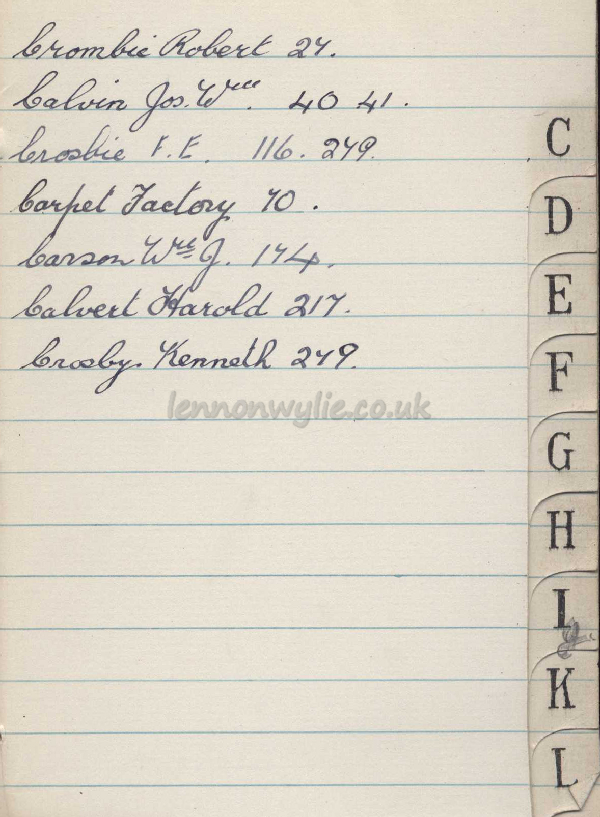 Crombie Robert 27.
Calvin Jos. Wm. 40 41.
Crosbie F.E. 116. 279.
Carpet Factory 70.
Carson Wm J. 174.
Calvert Harold 217.
Crosby. Kenneth 279.
lennonwylie.co.uk
C
D
E
F
G
H
I
K
L